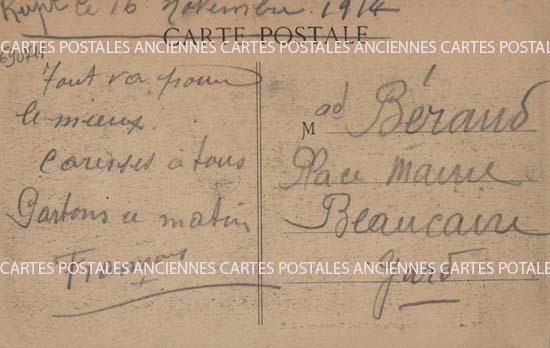 le 16 Novembre 1914
CARTE POSTALE
CARTES POSTALES ANCIENNES CARTES POSTALES ANCIENNES CARTES POSTALES
Tout va pour
le mieux.
Caresses à tous
Partons ce matin
François
Mad Béraud
Place Mairie
Beaucaire
Gard
CARTES POSTALES ANCIENNES CARTES POSTALES ANCIENNES CARTES POTALES